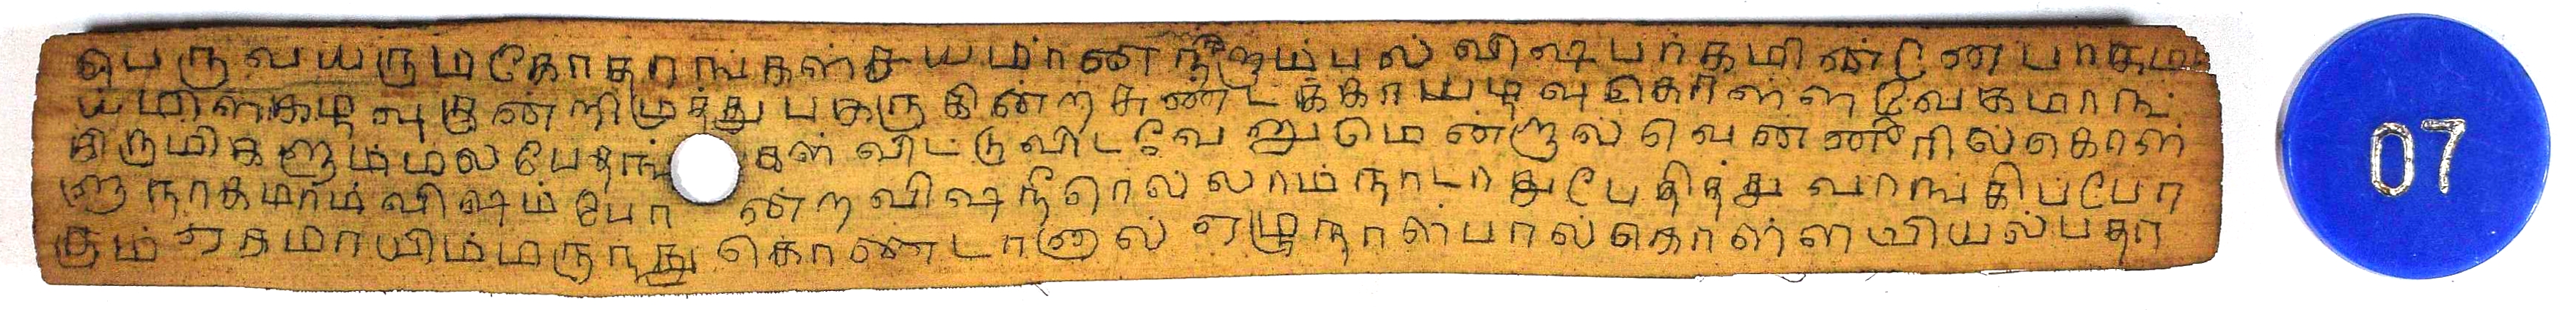 பெருவயரும கோதரங்கள்சுயமான நீரும்பல் விஷபாகமின்னேபாகம
ய்மிளகழவு குன்றிமுத்து பகருகின்ற சுண்டக்காயழவு கொள்ளவேகமாங்
கிருமிகளும்மல பேதாங்கள் விட்டுவிடவேணுமென்றால் வெண்ணீரில்கொள்
ளு நாகமாம் விஷம் போன்ற விஷநீரெல்லாம் நாடாது பேதித்து வாங்கிப்போ
கும் ஏகமாயிம்மருந்து கொண்டானால் ஏழுநாள்பால்கொள்ள யியல்பதா
07